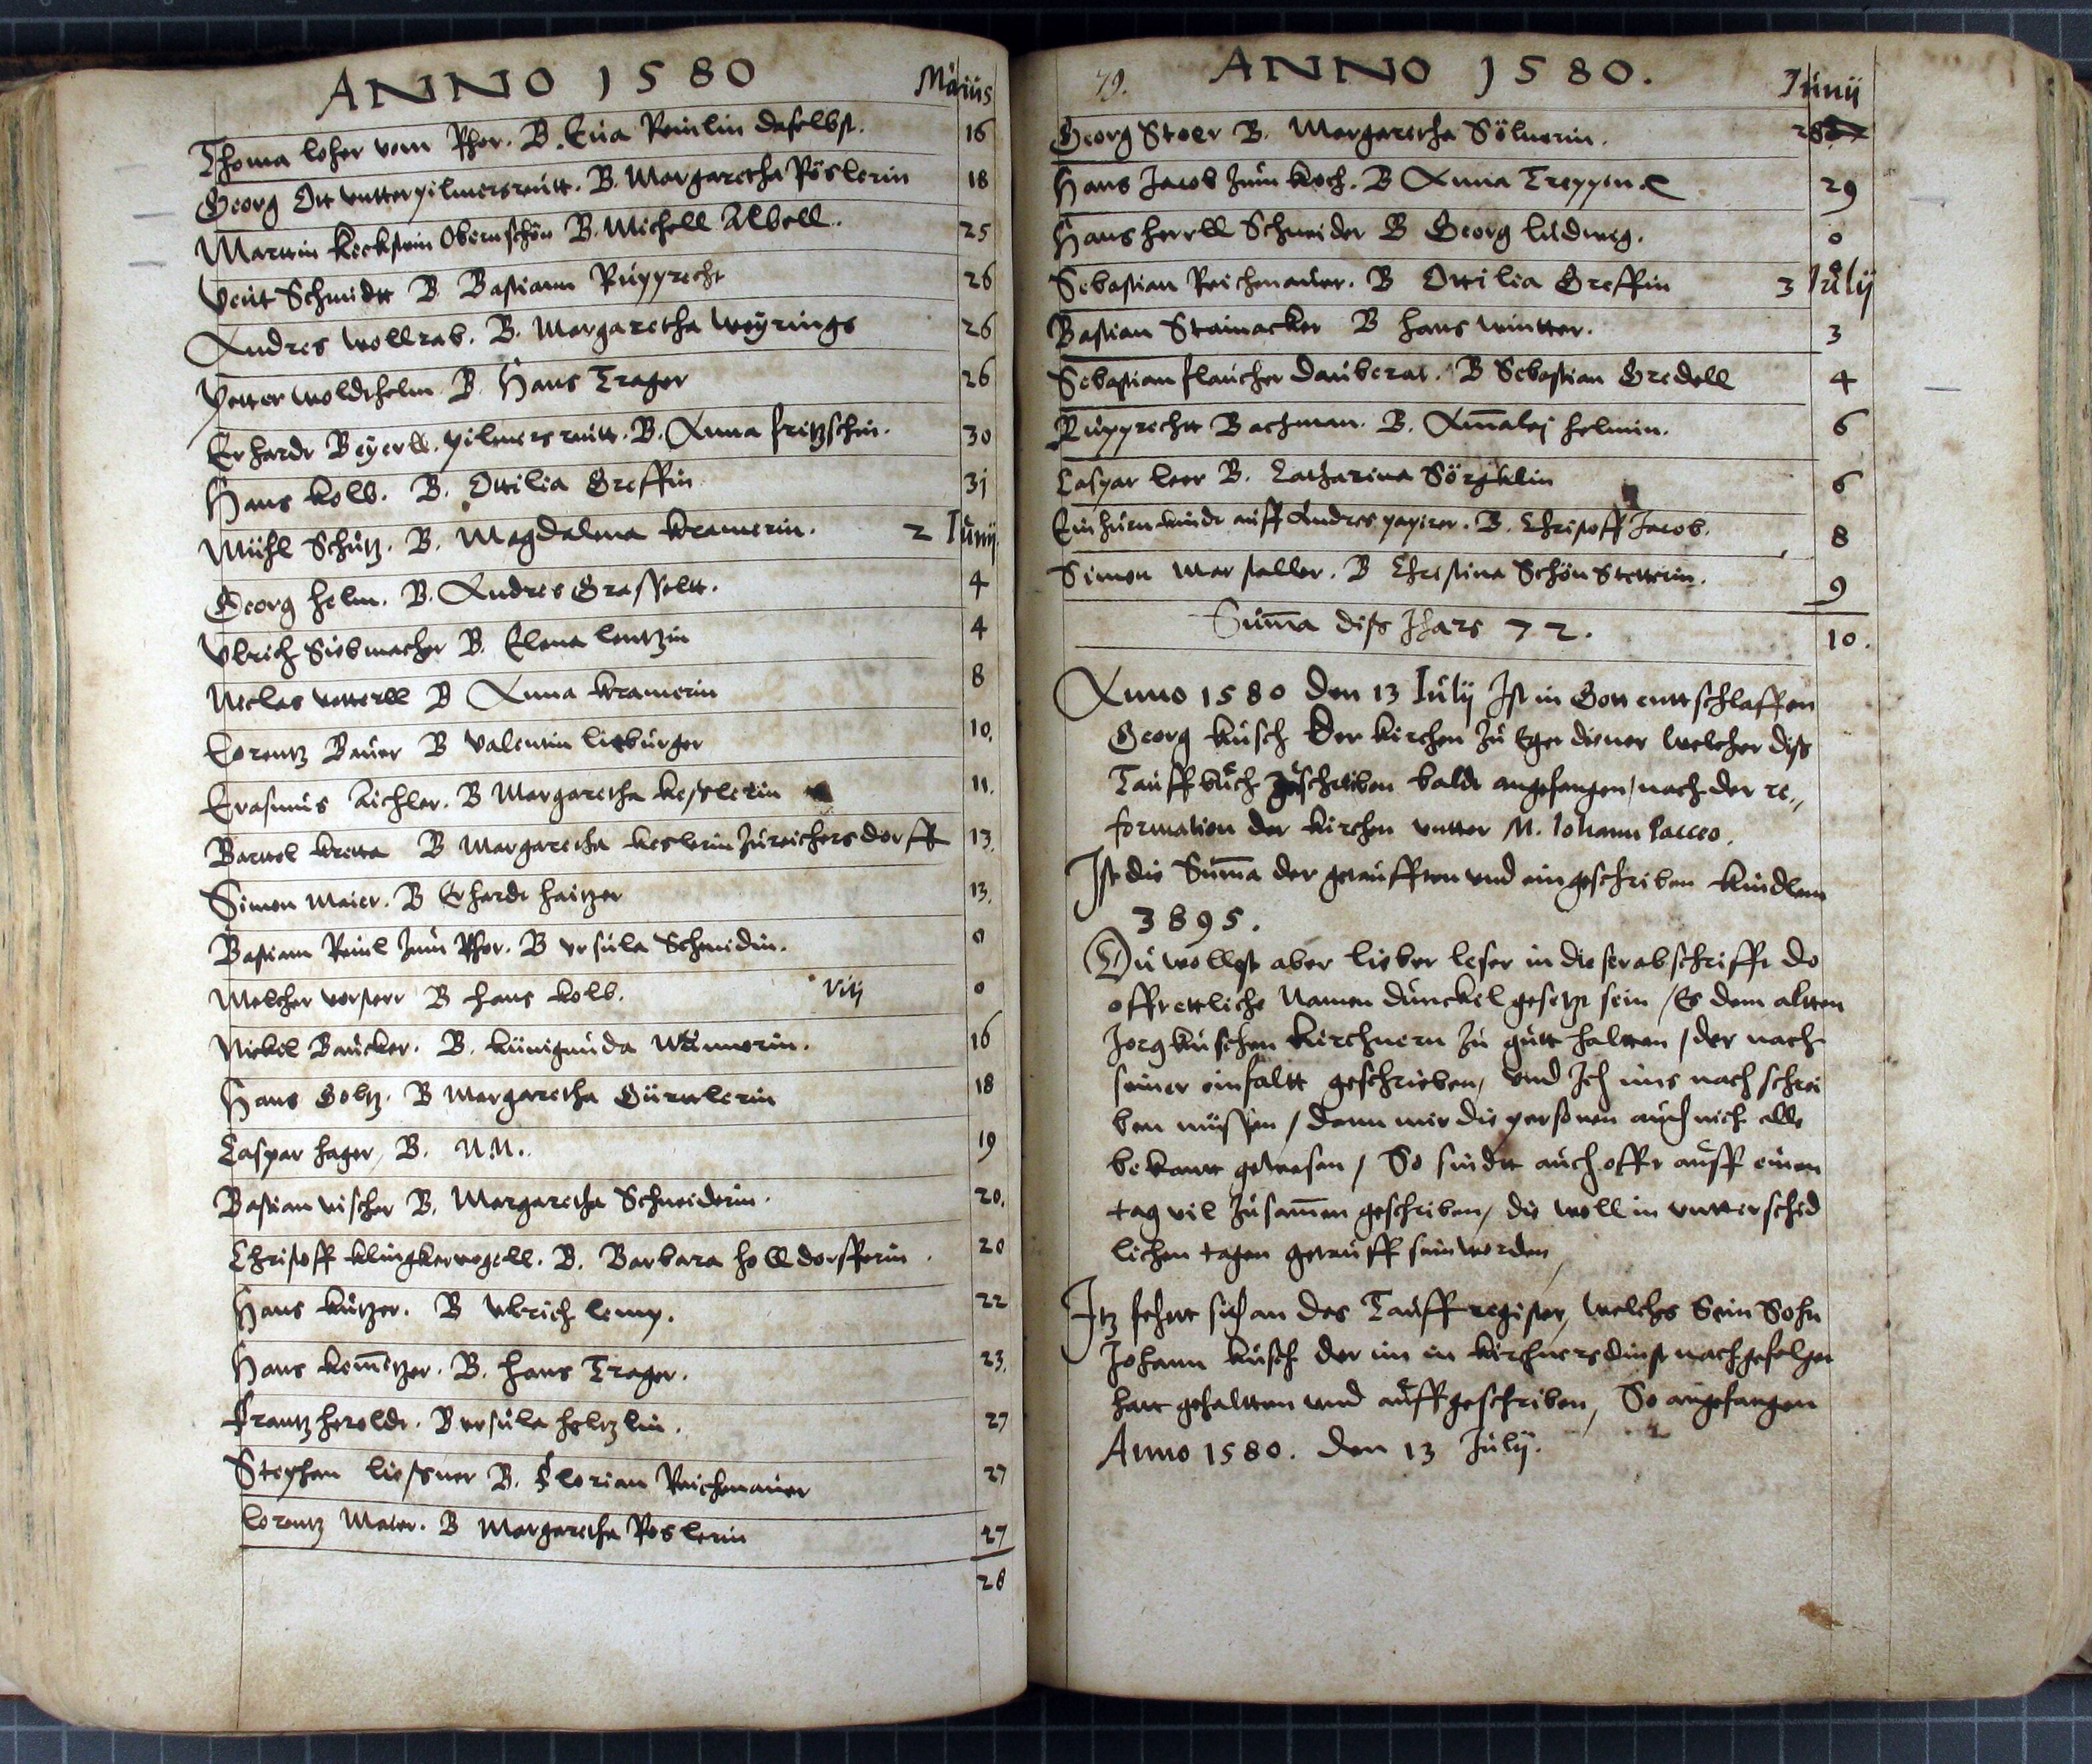 ANNO 1580 Maius
Thoma loher vom Rhor. B. Eua Reinlin daselbst. 16
Georg Ott vntterpilmersreutt. B. Margaretha Röslerin 18
Marttin Keckstein Obernschön B. Michell Albell. 25
Veit Schmidtt B. Bastiann Rupprecht 26
Andres wollrab. B. Margaretha weyrings 26
Petter woldthelm B. Hans Trager 26
Erhardt Beyerll. pilmersreutt. B. Anna fritzschin. 30
Hans kolb. B. Ottilia Greffin 31
Mühl Schütz. B. Magdalena kramerin. 2 Junij
Georg helm. B. Andres Grasseltt. 4
Vlrich Siebmacher B. Elena lentzin 4
Niclas vetterll B Anna kramerin 8
Lorentz Bauer B Valentin litburger 10.
Erasmus Aichler. B Margaretha kesslerin 11.
Barttel kretta B Margaretha keslerin zu reichersdorff 13.
Simon Maier. B Erhardt haitzer 13.
Bastiann Reinl zum Rhor. B vrsula Schmidin. 0
Melcher vorsterr B hans kolb. Vitj 0
Nickel Baucker. B. künigunda Wannerin. 16
Hans Goltz. B Margaretha Gürtlerin 18
Caspar hager, B. N.N. 19
Bastian vischer B. Margaretha Schneiderin. 20.
Christoff klingkervogell. B. Barbara holldorfferin. 20
Hans kutzer. B Vlrich lemp. 22
Hans kem̄etzer. B. hans Trager. 23.
Frantz heroldt. B vrsula heltzlin. 27
Stephan liessner B. Florian Reichenauer 27
Lorentz Maier. B Margaretha Roslerin 27
28
79. ANNO 1580. Junij
Georg Stoer B. Margaretha Sölnerin. 28
Hans Jacob zum koch. B Anna Treppin 29
Hans herrll Schneider B Georg ludwig. 0
Sebastian Reichenauer. B Ottilia Greffin 3 Julij
Bastian Stainacker B hans wintter. 3
Sebastian flaucher Dauberat. B Sebastian Gredell 4
Rupprechtt Bachman. B. Am̄alej helmin. 6
Caspar leer B. Catharina Sörgklin 6
Ein hurnkindt auff Andres papirer. B. Christoff Jacob. 8
Simon Marstaller. B Christina Schönstetterin. 9
Sum̄a diss Jhars 72. 10.
Anno 1580 den 13 Julij Ist in Gott enttschlaffen
Georg kusch der kirchen zu Eger diener welcher diss
Tauffbuch zuschreiben baldt angefangen, nach der re-
formation der kirchen vntter M. Johann Pacceo.
Ist die Sum̄a der getaufften und eingeschriben kindlein
3895.
Du wollest aber lieber leser in dieser abschrifft do
offt ettliche Namen dunckel gesetzt sein / Es dem altten
Jorg kuschen kirchnern zu gutt haltten / der nach
seiner einfaltt geschrieben, vnd Ich ims nach schrei
ben müssen / dann mir die personen auch nich alle
bekant gewesen / So sindtt auch offt auff einen
tag vil zusam̄en geschriben, die woll in vntterschid
lichen tagen getaufft sein worden,
Itz fehett sich an das Tauffregister, welches Sein Sohn
Johann kusch der im in kirchners dinst nachgefolgt
hatt gehaltten vnd auffgeschriben, So angefangen
Anno 1580. den 13 Julij.